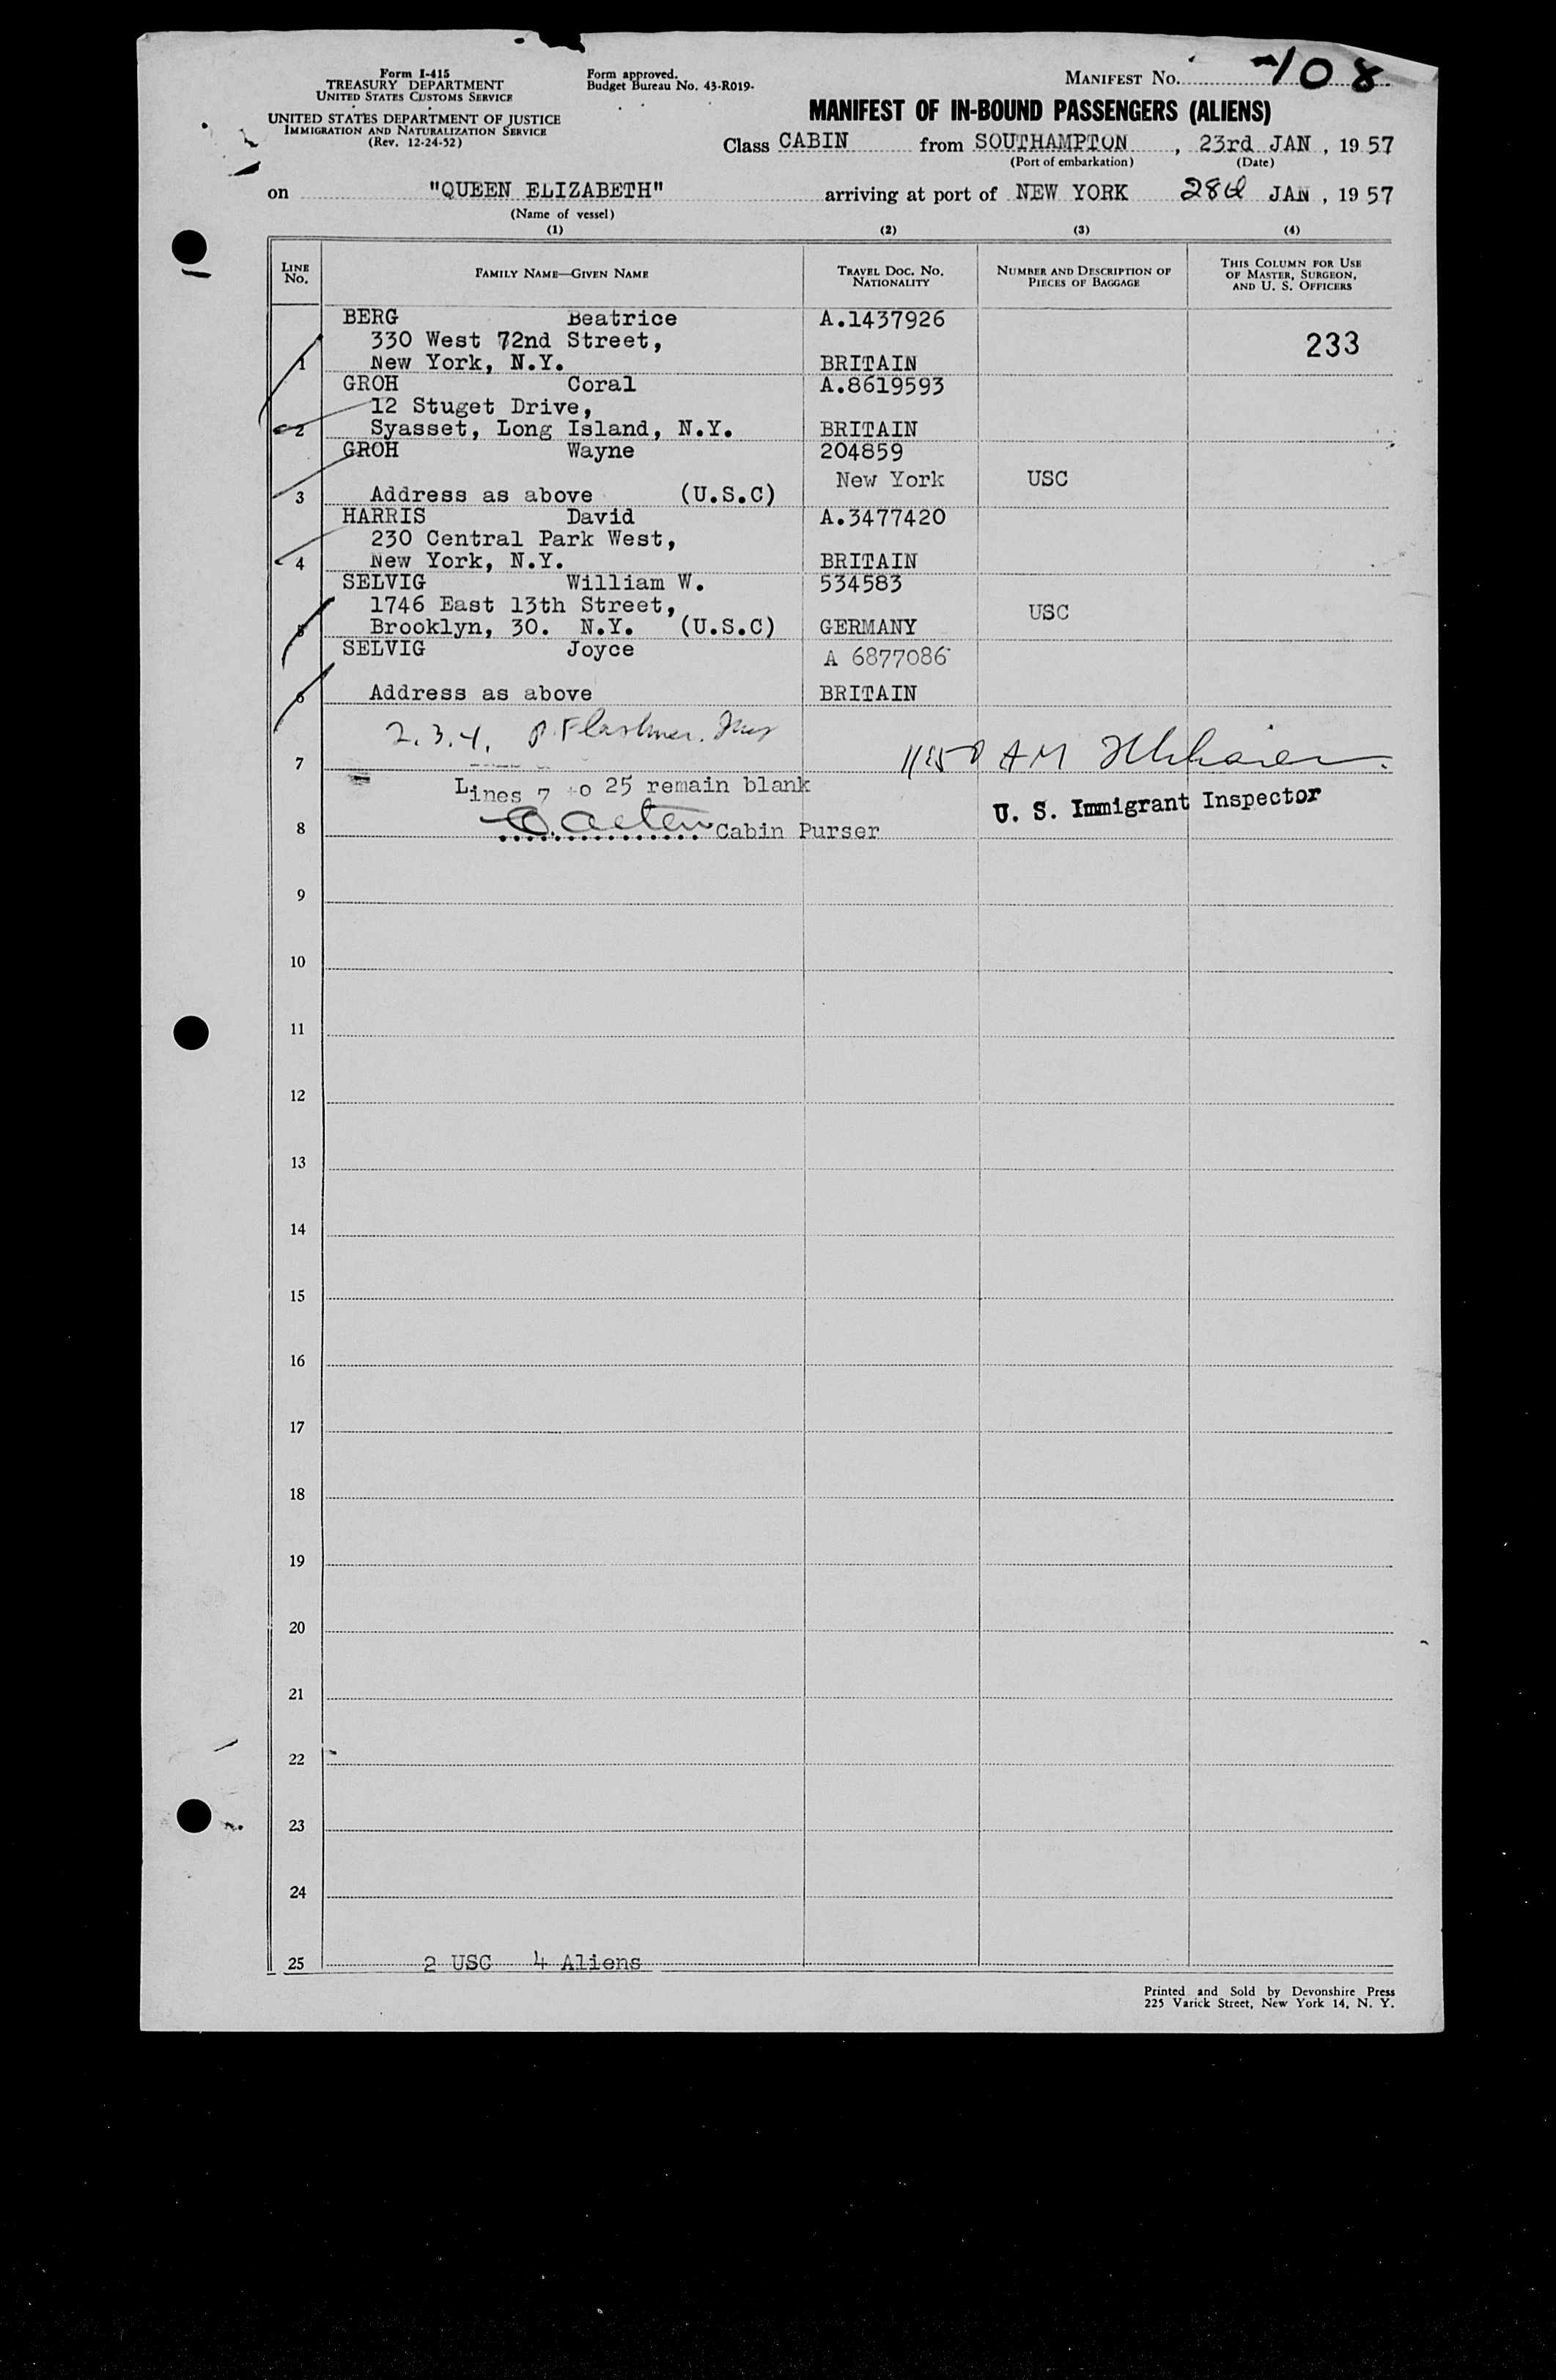 Form I-415
TREASURY DEPARTMENT
UNITED STATES CUSTOMS SERVICE
UNITED STATES DEPARTMENT OF JUSTICE
IMMIGRATION AND NATURALIZATION SERVICE
(Rev. 12-24-52)
Form approved.
Budget Bureau No. 43-R019-
MANIFEST NO. 108
MANIFEST OF IN-BOUND PASSENGERS (ALIENS)
Class CABIN from SOUTHAMPTON, 23rd JAN, 19 57
(Port of embarkation) (Date)
on "QUEEN ELIZABETH" arriving at port of NEW YORK 28 JAN, 19 57
(Name of vessel)
(1) (2) (3) (4)
LINE NO. FAMILY NAME—GIVEN NAME TRAVEL DOC. NO. NATIONALITY NUMBER AND DESCRIPTION OF PIECES OF BAGGAGE THIS COLUMN FOR USE OF MASTER, SURGEON, AND U. S. OFFICERS
BERG Beatrice A.1437926
330 West 72nd Street, 233
1 New York, N.Y. BRITAIN
GROH Coral A.8619593
12 Stuget Drive,
2 Syasset, Long Island, N.Y. BRITAIN
GROH Wayne 204859
New York USC
3 Address as above (U.S.C)
HARRIS David A.3477420
230 Central Park West,
4 New York, N.Y. BRITAIN
SELVIG William W. 534583
1746 East 13th Street, USC
5 Brooklyn, 30. N.Y. (U.S.C) GERMANY
SELVIG Joyce A 6877086
6 Address as above BRITAIN
2.3.4.
7 1150 AM
Lines 7 to 25 remain blank
U. S. Immigrant Inspector
8 Cabin Purser
9
10
11
12
13
14
15
16
17
18
19
20
21
22
23
24
25 2 USC 4 Aliens
Printed and Sold by Devonshire Press
225 Varick Street, New York 14, N. Y.